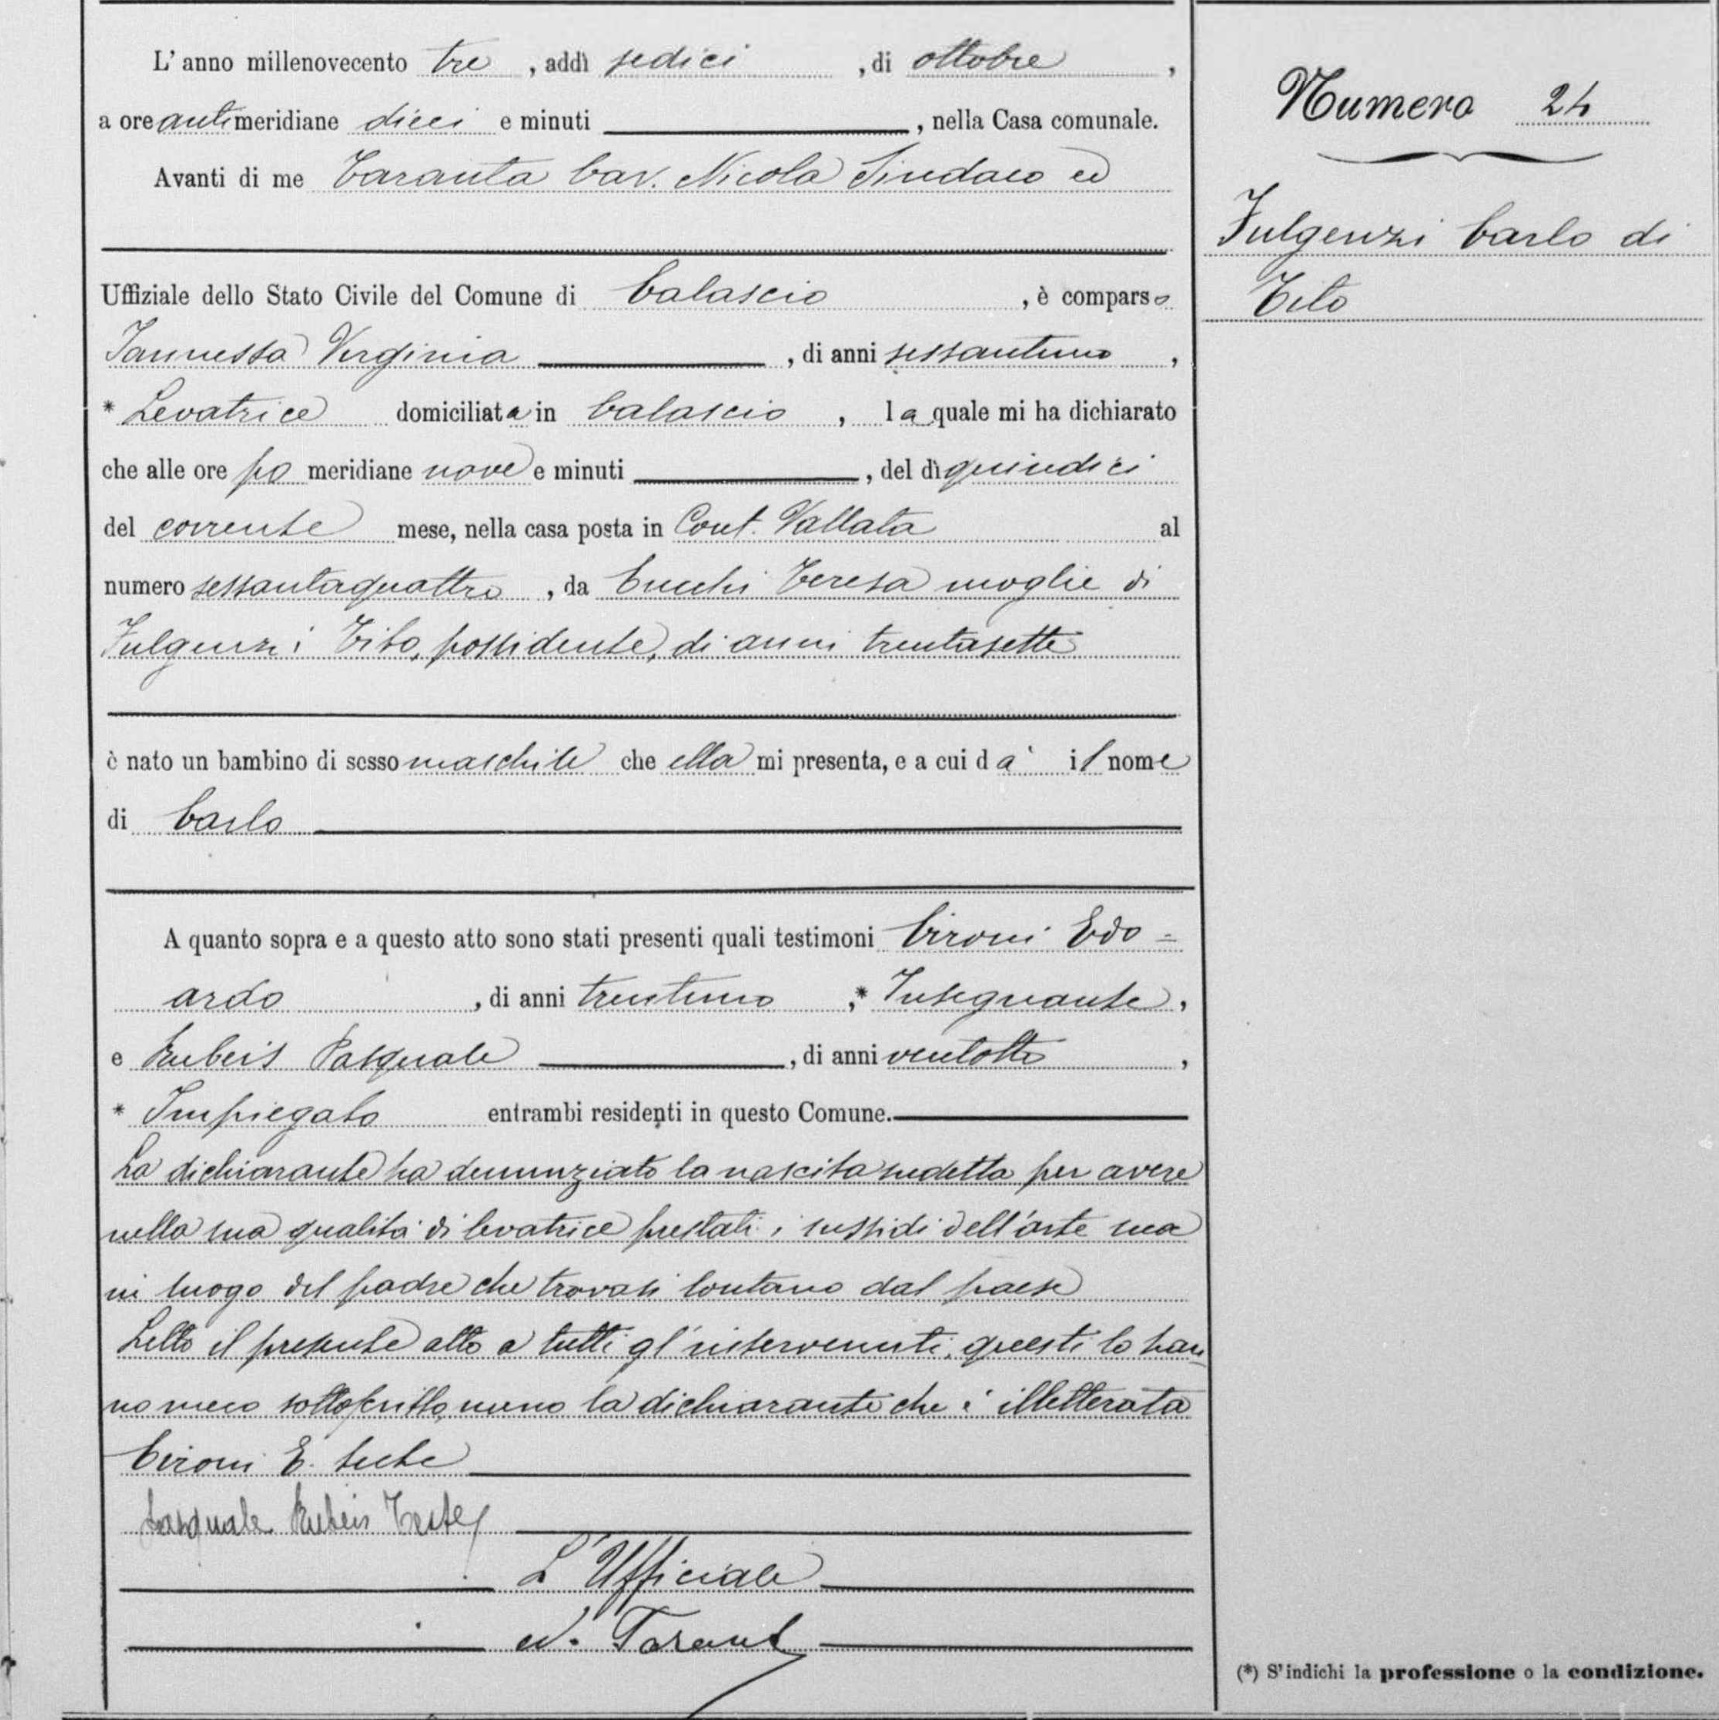 L'anno millenovecento tre, addì sedici, di ottobre,
a ore antimeridiane dieci e minuti, nella Casa comunale.
Avanti di me Taranta Cav. Nicola Sindaco ed
Uffiziale dello Stato Civile del Comune di Calascio, è comparso
Iannessa Virginia, di anni sessantuno,
* Levatrice domiciliata in Calascio, la quale mi ha dichiarato
che alle ore po meridiane nove e minuti, del dì quindici
del corrente mese, nella casa posta in Cont. Vallata al
numero sessantaquattro, da Cucchi Teresa moglie di
Fulgenzi Tito, possidente, di anni trentasette
è nato un bambino di sesso maschile che ella mi presenta, e a cui dà il nome
di Carlo
A quanto sopra e a questo atto sono stati presenti quali testimoni Cironi Edo=
ardo, di anni trentuno, * Insegnante,
e Rubeis Pasquale, di anni ventotto,
* Impiegato entrambi residenti in questo Comune.
La dichiarante ha denunziato la nascita sudetta per avere
nella sua qualità di levatrice prestati i sussidi dell'arte sua
in luogo del padre che trovasi lontano dal paese
Letto il presente atto a tutti gl'intervenuti, questi lo han
no meco sottoscritto, meno la dichiarante che è illetterata
Cironi E. teste
Pasquale Rubeis Teste
L'Ufficiale
N. Tarant
Numero 24
Fulgenzi Carlo di
Tito
(*) S'indichi la professione o la condizione.